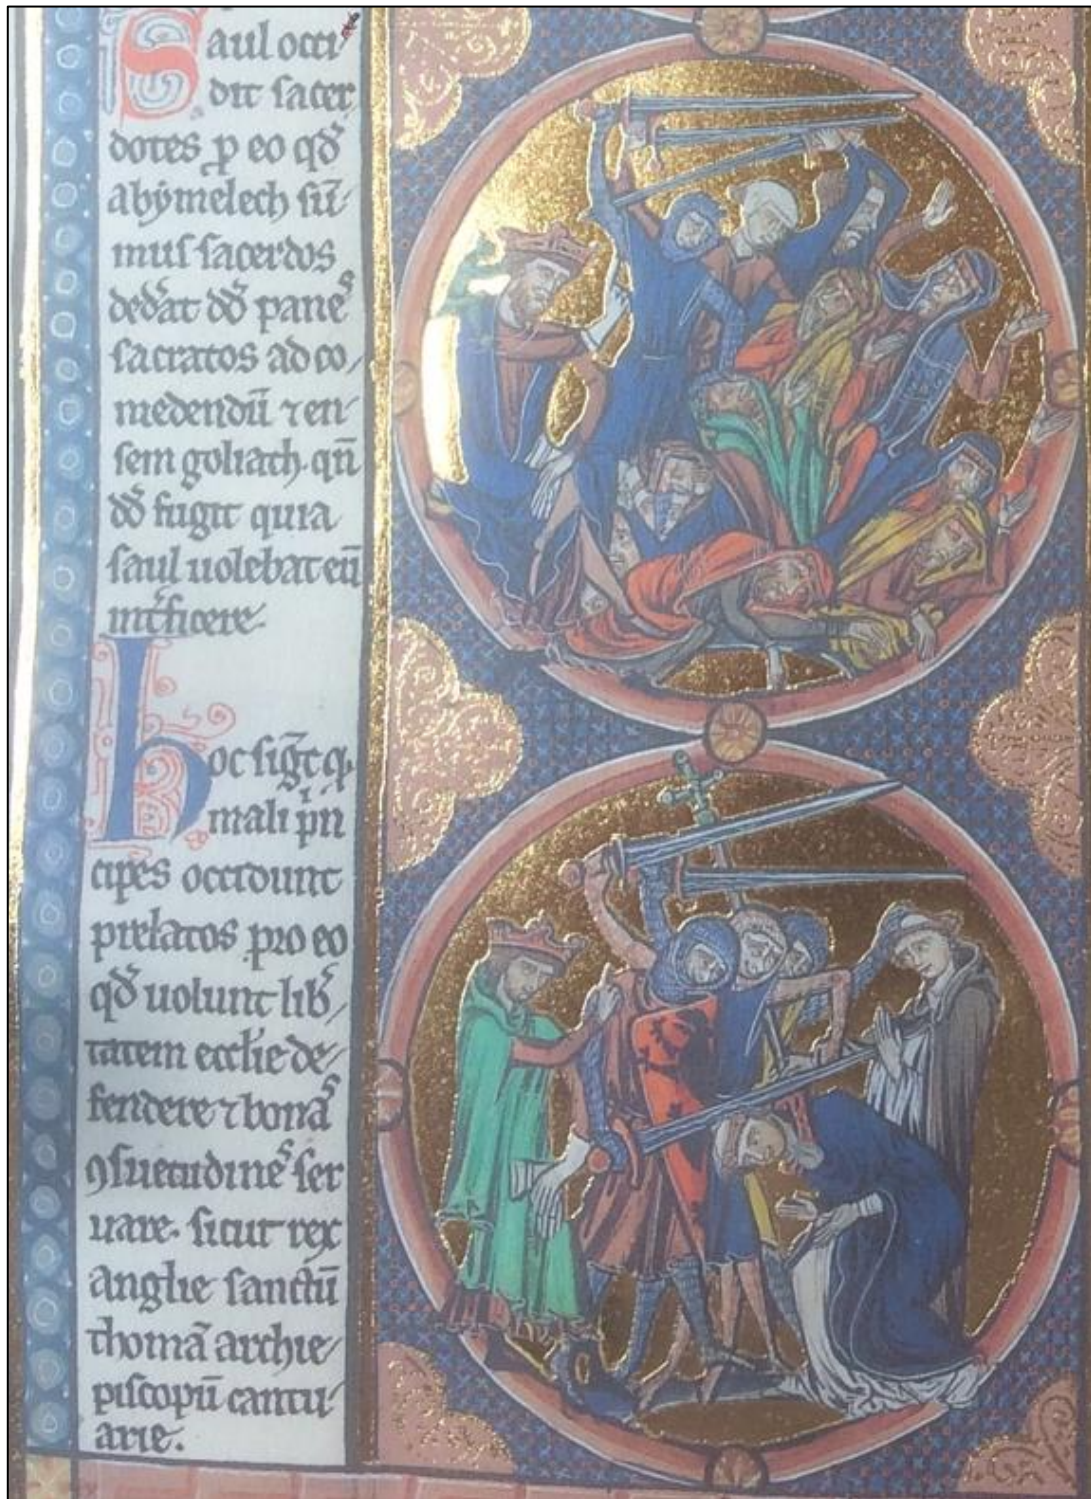 Saul occi
dit sacer
dotes ꝑ eo qd̄
abẏmelech sū
mus sacerdos
ded̓at dd̓ paneˢ
sacratos ad co
medendū ⁊ en
sem goliath. qn̄
dd̓ fugit quia
saul uolebat eū
int̓ficere.
hoc siḡt ꝙ
mali pⁱn
cipes occidunt
prelatos pro eo
qd̓ uolunt lib̓
tatem eccl̓ie de
fendere ⁊ bonaˢ
ꝯsuetudineˢ ser
uare. sicut rex
anglie sanctū
thomā archie
piscopū cantu
arie.